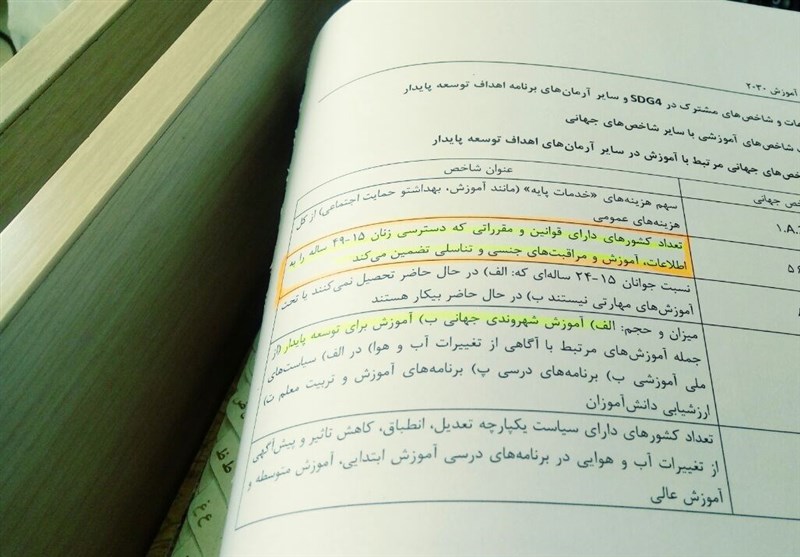 آموزش ۲۰۳۰
و شاخص‌های مشترک در SDG4 و سایر آرمان‌های برنامه اهداف توسعه پایدار
شاخص‌های آموزشی با سایر شاخص‌های جهانی
جهانی مرتبط با آموزش در سایر آرمان‌های اهداف توسعه پایدار
جهانی
عنوان شاخص
سهم هزینه‌های «خدمات پایه» (مانند آموزش، بهداشتو حمایت اجتماعی) از کل
هزینه‌های عمومی
تعداد کشورهای دارای قوانین و مقرراتی که دسترسی زنان ۱۵-۴۹ ساله را به
اطلاعات، آموزش و مراقبت‌های جنسی و تناسلی تضمین می‌کند
نسبت جوانان ۱۵-۲۴ ساله‌ای که: الف) در حال حاضر تحصیل نمی‌کنند یا تحت
آموزش‌های مهارتی نیستند ب) در حال حاضر بیکار هستند
میزان و حجم: الف) آموزش شهروندی جهانی ب) آموزش برای توسعه پایدار (از
جمله آموزش‌های مرتبط با آگاهی از تغییرات آب و هوا) در الف) سیاست‌های
ملی آموزشی ب) برنامه‌های درسی پ) برنامه‌های آموزش و تربیت معلم ت)
ارزشیابی دانش‌آموزان
تعداد کشورهای دارای سیاست یکپارچه تعدیل، انطباق، کاهش تاثیر و پیش‌آگهی
از تغییرات آب و هوایی در برنامه‌های درسی آموزش ابتدایی، آموزش متوسطه و
آموزش عالی